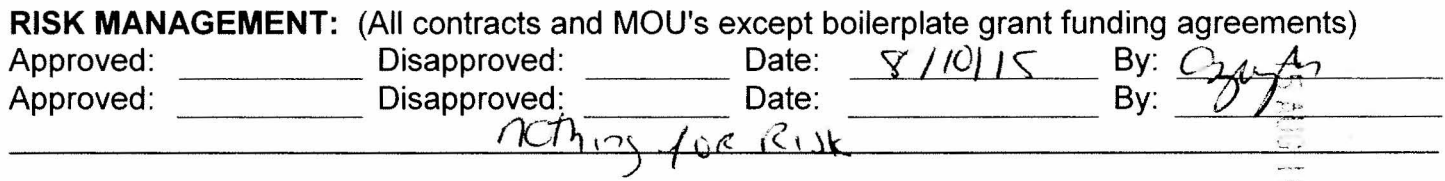 RISK MANAGEMENT: (All contracts and MOU's except boilerplate grant funding agreements)
Approved: Disapproved: Date: 8/10/15 By:
Approved: Disapproved: Date: By:
nothing for Risk